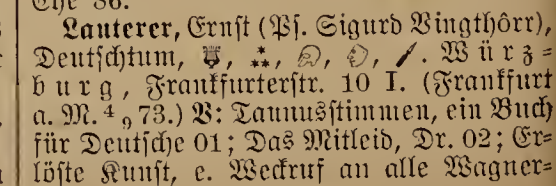 Ehe 86.
Lauterer, Ernst (Ps. Sigurd Vingthórr),
Deutschtum, , , , , . Würz=
burg, Frankfurterstr. 10 I. (Frankfurt
a. M. 4 9 73.) V: Taunusstimmen, ein Buch
für Deutsche 01; Das Mitleid, Dr. 02; Er=
löste Kunst, e. Weckruf an alle Wagner=